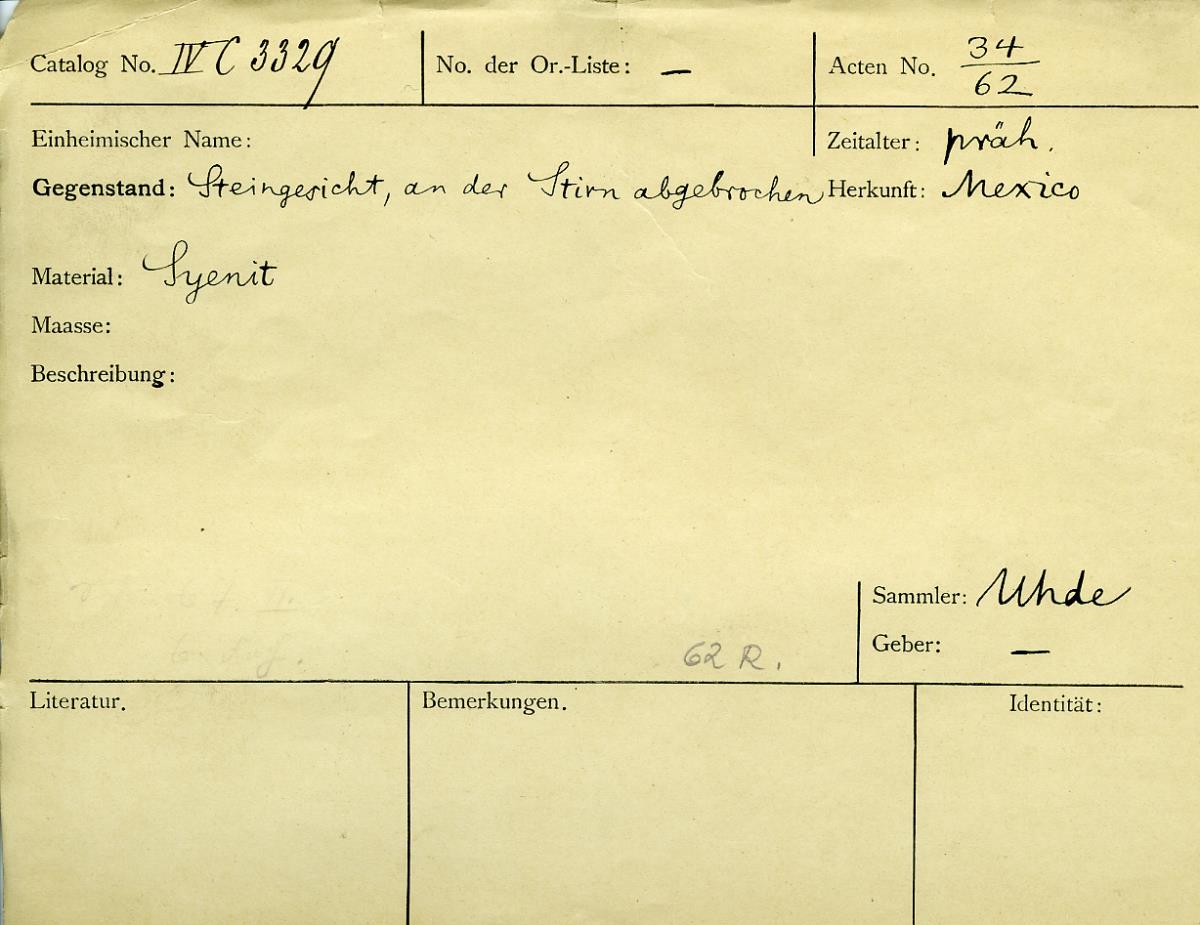 Catalog No. IV C 3329 No. der Or.-Liste: — Acten No. 34/62
Einheimischer Name: Zeitalter: präh.
Gegenstand: Steingesicht, an der Stirn abgebrochen Herkunft: Mexico
Material: Syenit
Maasse:
Beschreibung:
Sammler: Uhde
Geber: —
62 R.
Literatur. Bemerkungen. Identität: